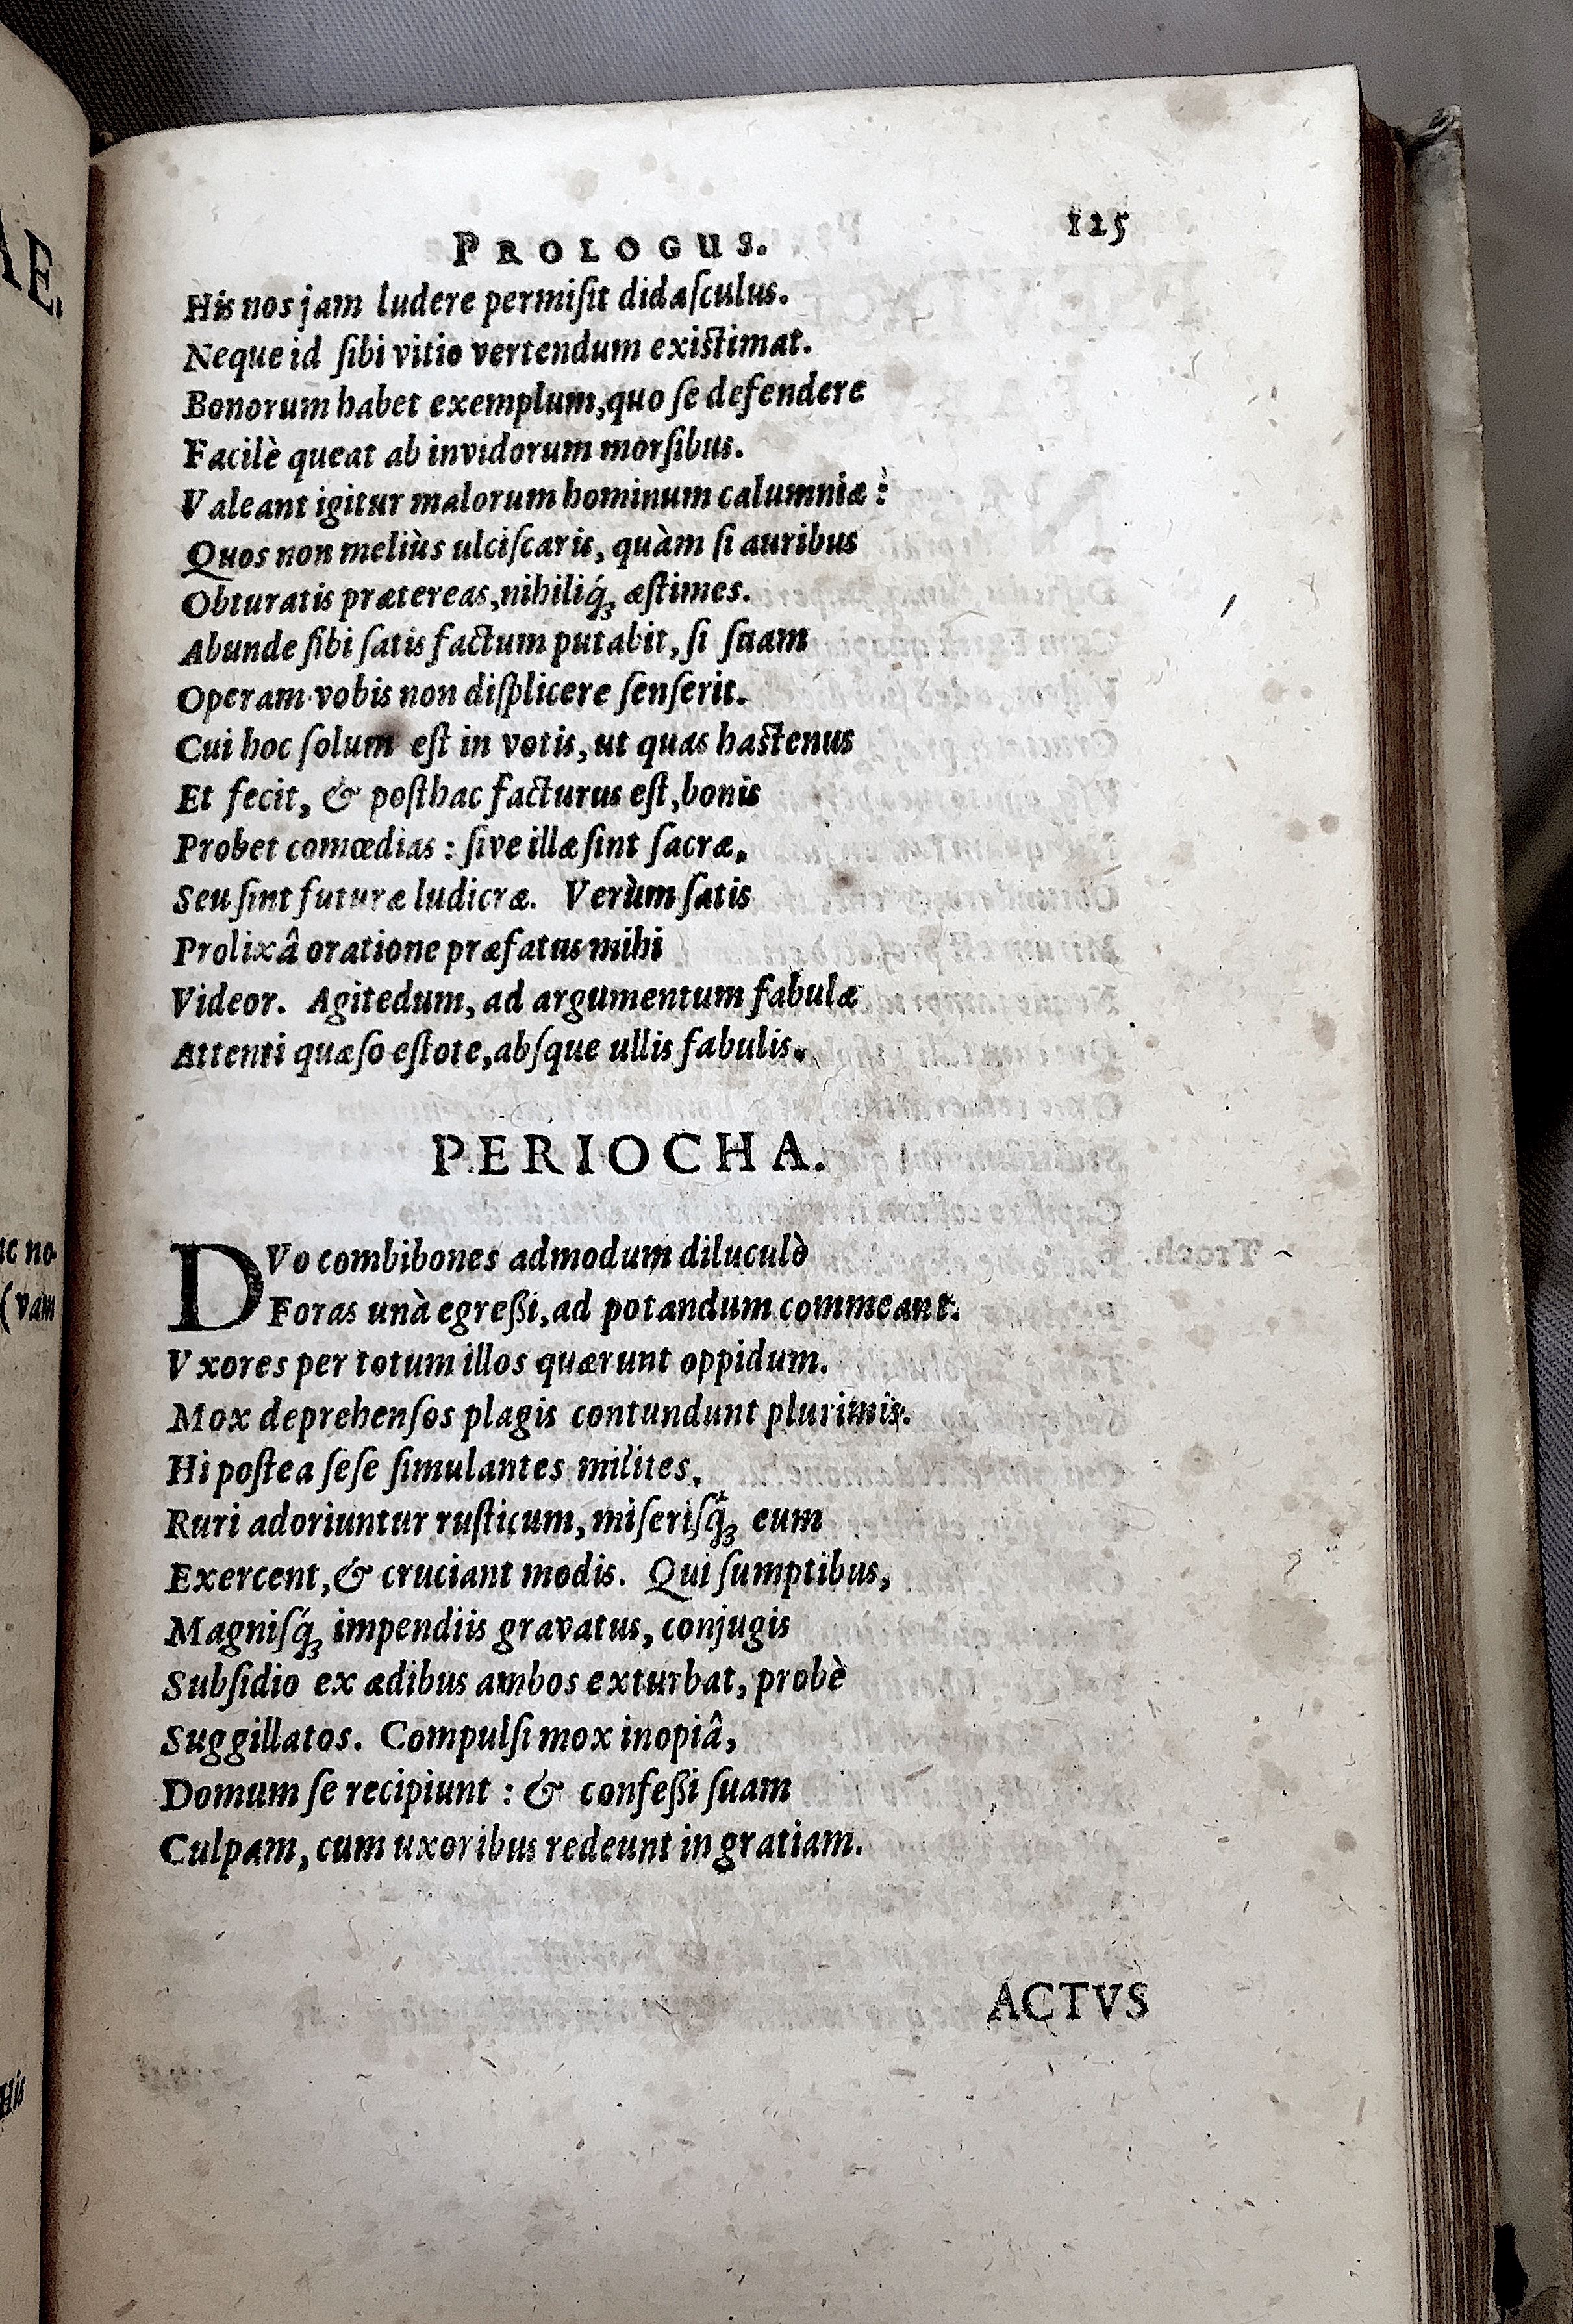 PROLOGUS. 125
His nos jam ludere permiſit didaſculus.
Neque id ſibi vitio vertendum exiſtimat.
Bonorum habet exemplum, quo ſe defendere
Facilè queat ab invidorum morſibus.
Valeant igitur malorum hominum calumniæ:
Quos non meliùs ulciſcaris, quàm ſi auribus
Obturatis prætereas, nihiliq́ꝫ æſtimes.
Abunde ſibi ſatis factum putabit, ſi ſuam
Operam vobis non diſplicere ſenſerit.
Cui hoc ſolum eſt in votis, ut quas haſtenus
Et fecit, & poſthac facturus eſt, bonis
Probet comœdias : ſive illæ ſint ſacræ,
Seu ſint futuræ ludicræ. Verùm ſatis
Prolixâ oratione præfatus mihi
Videor. Agitedum, ad argumentum fabulæ
Attenti quæſo eſtote, abſque ullis fabulis.
PERIOCHA.
DVo combibones admodum diluculò
Foras unà egreßi, ad potandum commeant.
Vxores per totum illos quærunt oppidum.
Mox deprehenſos plagis contundunt plurimis.
Hi poſtea ſeſe ſimulantes milites,
Ruri adoriuntur ruſticum, miſeriſq́ꝫ eum
Exercent, & cruciant modis. Qui ſumptibus,
Magniſq́ꝫ impendiis gravatus, conjugis
Subſidio ex ædibus ambos exturbat, probè
Suggillatos. Compulſi mox inopiâ,
Domum ſe recipiunt : & confeßi ſuam
Culpam, cum uxoribus redeunt in gratiam.
ACTVS
AE.
no
(vam
His